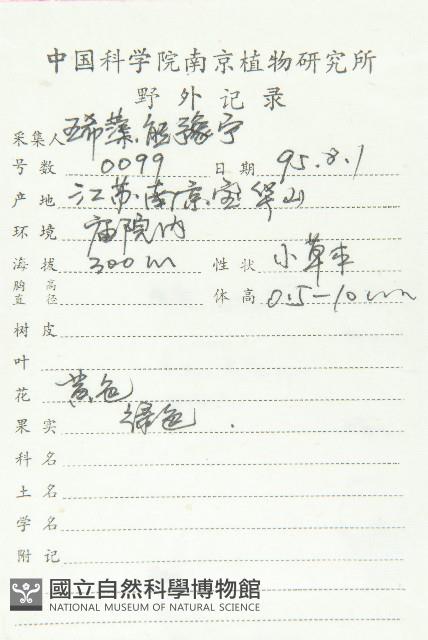 中国科学院南京植物研究所
野外记录
采集人 王希蕖 熊豫宁
号数 0099 日期 95.8.1
产地 江苏南京宝华山
环境 庙院内
海拔 300m 性状 小草本
胸高直径 体高 0.5-10cm
树皮
叶
花 黄色
果实 绿色.
科名
土名
学名
附记
國立自然科學博物館
NATIONAL MUSEUM OF NATURAL SCIENCE